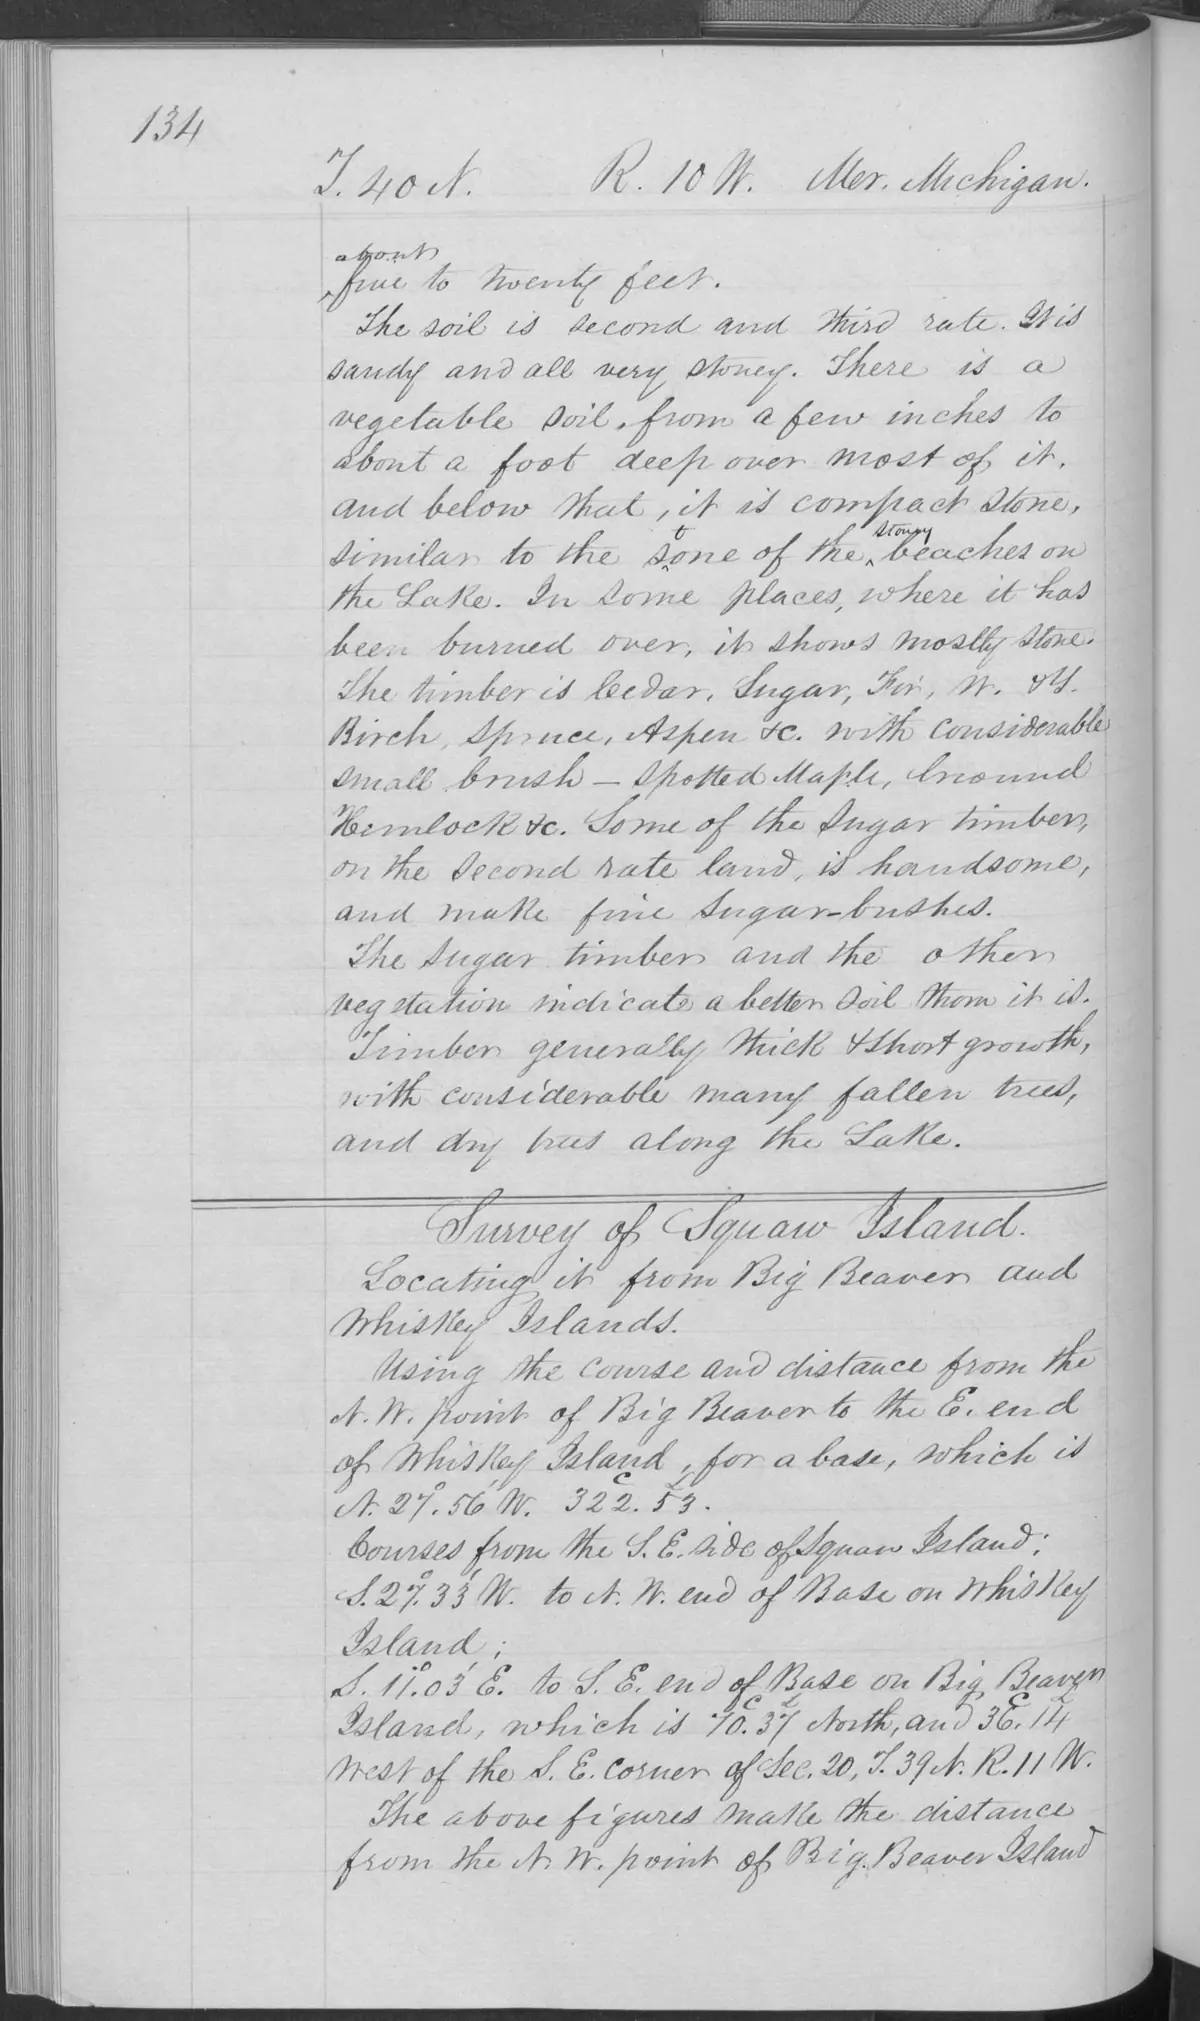 134
T. 40 N. R. 10 W. Mer. Michigan.
about
five to twenty feet.
The soil is second and third rate. It is
sandy and all very stoney. There is a
vegetable soil, from a few inches to
about a foot deep over most of it,
and below that, it is compact stone,
similar to the stone of the stony beaches on
the Lake. In some places, where it has
been burned over, it shows mostly stone.
The timber is Cedar, Sugar, Fir, W. & Y.
Birch, Spruce, Aspen &c. with considerable
small brush – Spotted Maple, Ground
Hemlock &c. Some of the Sugar timber,
on the second rate land, is handsome,
and make fine Sugar-bushes.
The Sugar timber and the other
vegetation indicate a better soil than it is.
Timber generally thick & short growth,
with considerable many fallen trees,
and dry trees along the Lake.
Survey of Squaw Island.
Locating it from Big Beaver and
Whiskey Islands.
Using the course and distance from the
N. W. point of Big Beaver to the E. end
of Whiskey Island, for a base, which is
N. 27°. 56' W. 322C. 53L.
Courses from the S. E. side of Squaw Island;
S. 27°. 33' W. to N. W. end of Base on Whiskey
Island;
S. 11°. 03' E. to S. E. end of Base on Big Beaver
Island, which is 70C. 37L North, and 36C. 14L
West of the S. E. corner of Sec. 20, T. 39 N. R. 11 W.
The above figures make the distance
from the N. W. point of Big Beaver Island